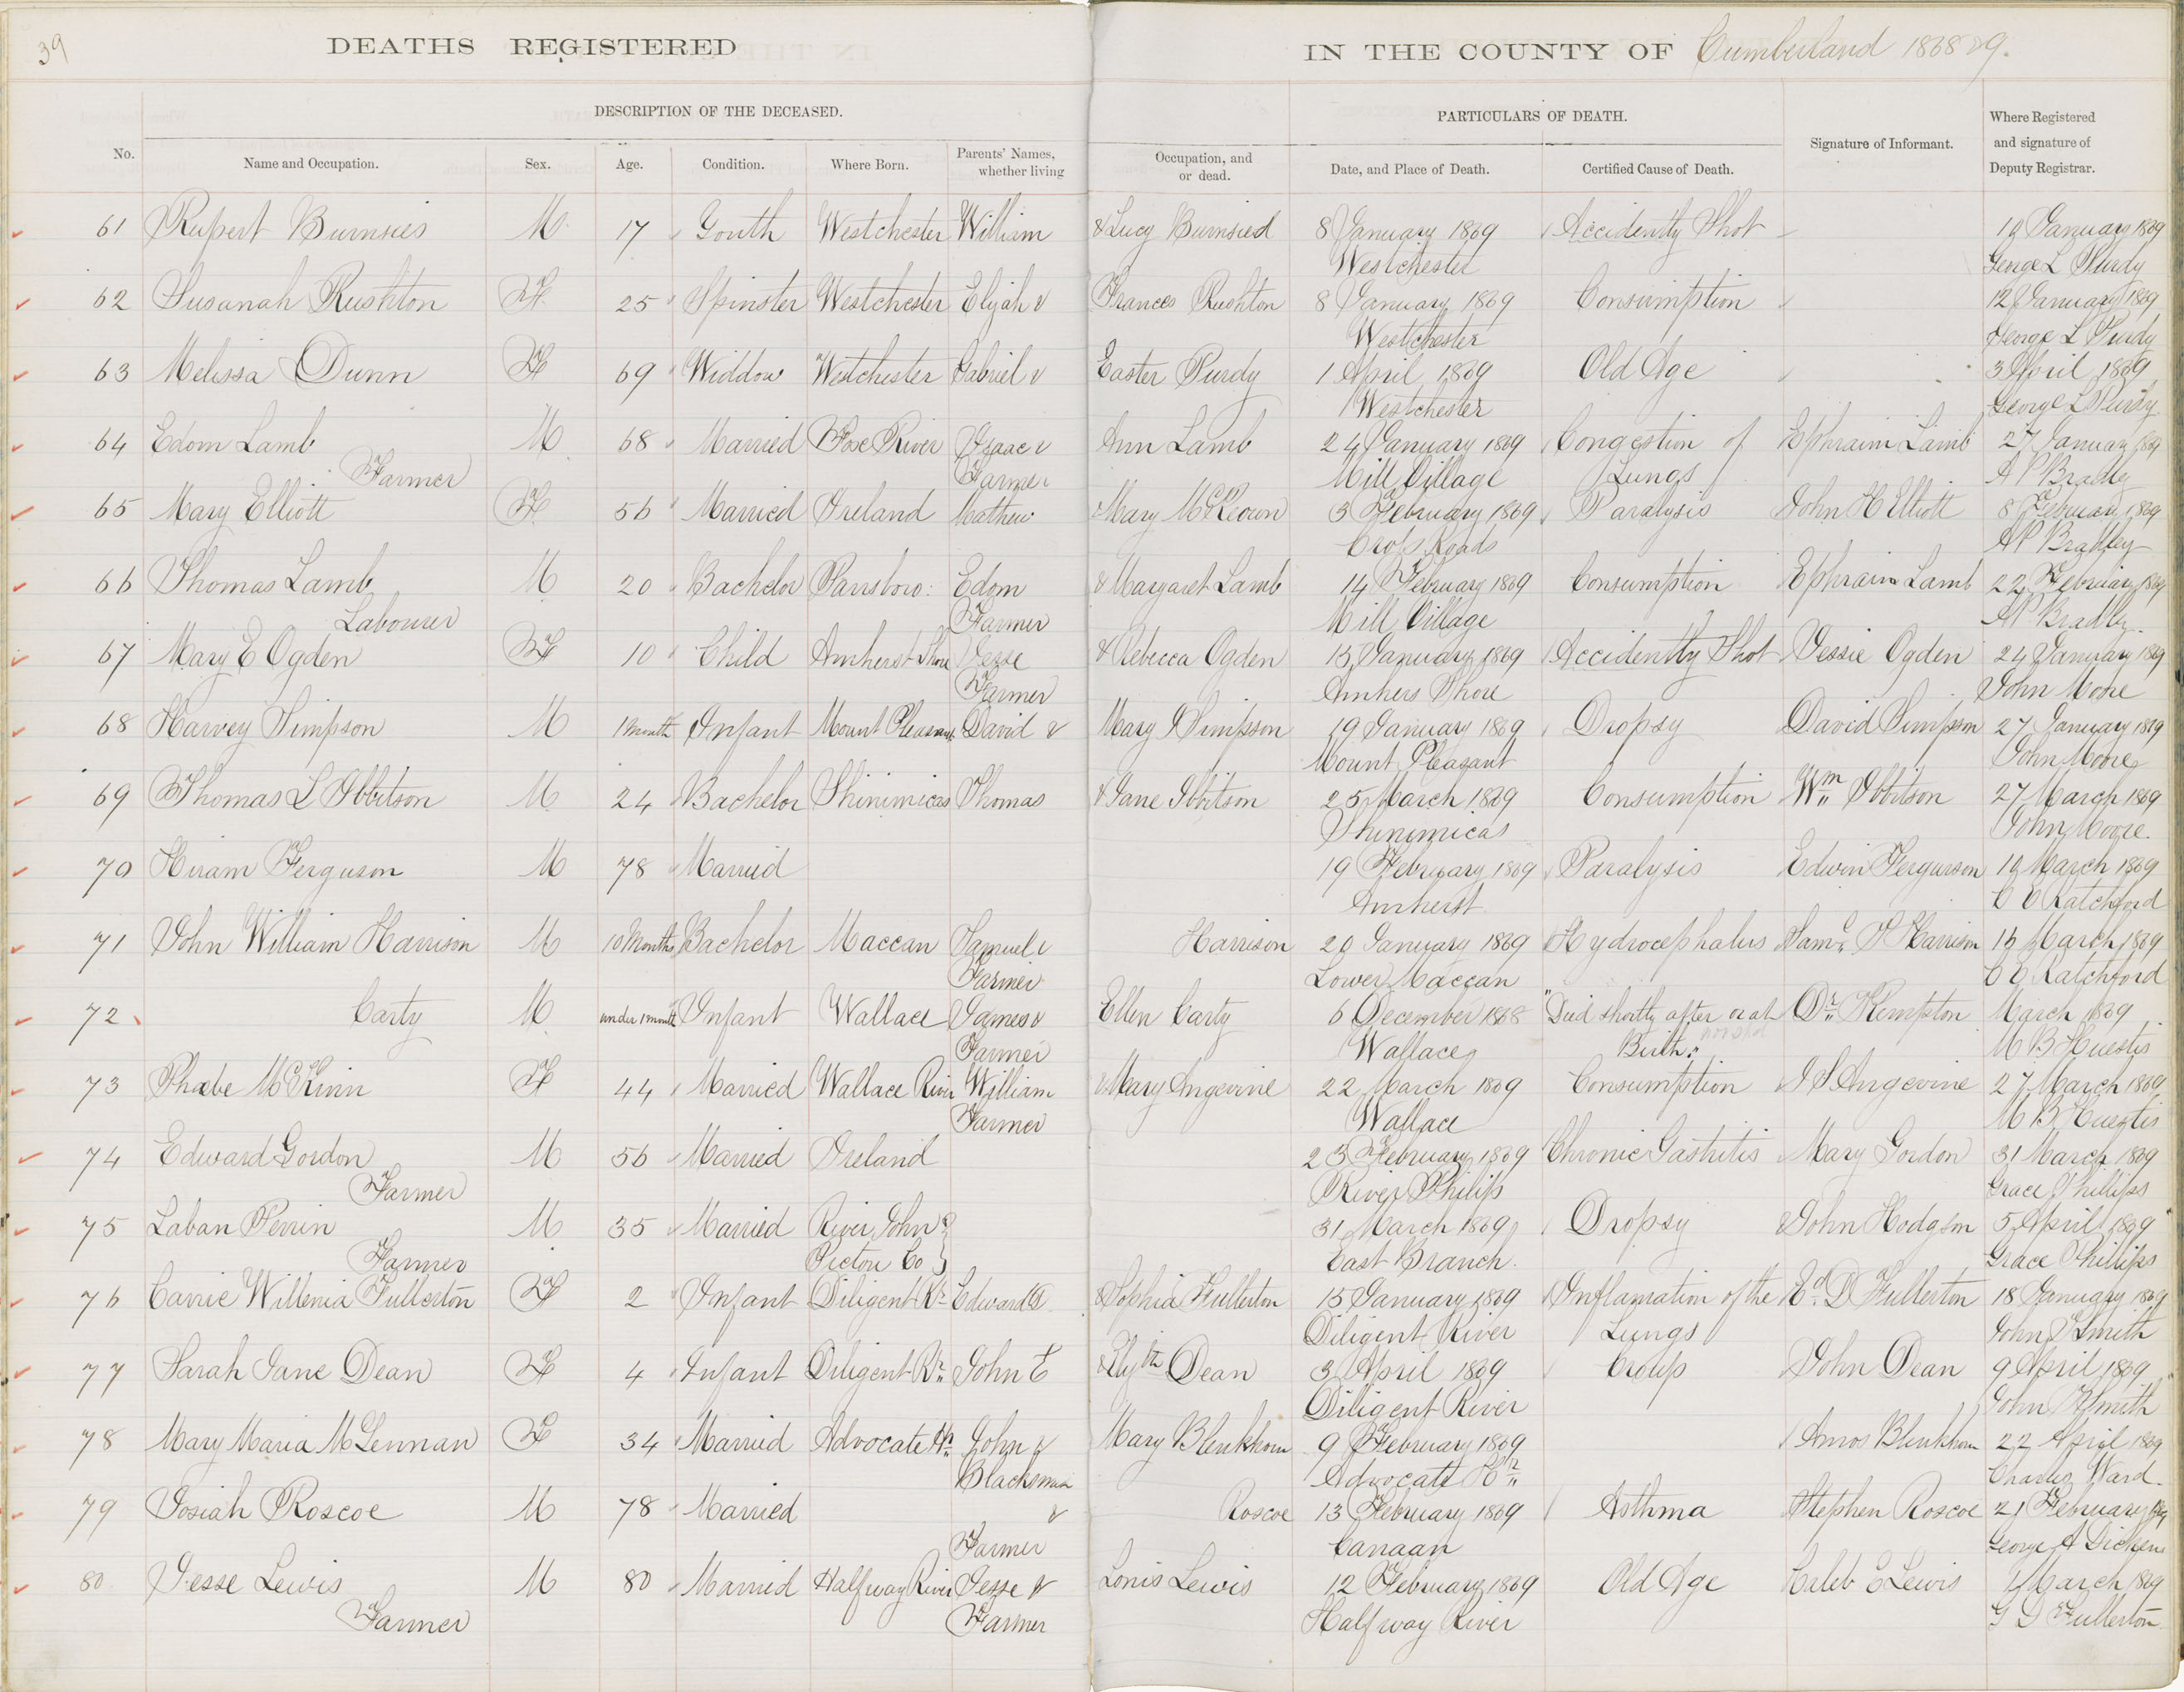 39
DEATHS REGISTERED IN THE COUNTY OF Cumberland 1868 & 9.
DESCRIPTION OF THE DECEASED. PARTICULARS OF DEATH.
No. Name and Occupation. Sex. Age. Condition. Where Born. Parents' Names, whether living Occupation, and or dead. Date, and Place of Death. Certified Cause of Death. Signature of Informant. Where Registered and signature of Deputy Registrar.
61 Rupert Burnsies M 17 Youth Westchester William & Lucy Burnsied 8 January 1869 Accidently Shot 19 January 1869
Westchester George L Purdy
62 Susanah Rushton F 25 Spinster Westchester Elijah & Frances Rushton 8 January 1869 Consumption 12 January 1869
Westchester George L Purdy
63 Melissa Dunn F 69 Widdow Westchester Gabriel & Easter Purdy 1 April 1869 Old Age 3 April 1869
Westchester George L Purdy
64 Edom Lamb M 68 Married Fox River Isaac & Ann Lamb 24 January 1869 Congestion of Ephraim Lamb 27 January 1869
Farmer Farmer Mill Village Lungs A P Bradley
65 Mary Elliott F 56 Married Ireland Mathew & Mary McKeown 3 February 1869 Paralysis John H Elliott 8 February 1869
Cross Roads A P Bradley
66 Thomas Lamb M 20 Bachelor Parrsboro: Edom & Margaret Lamb 14 February 1869 Consumption Ephraim Lamb 22 February 1869
Labourer Farmer Mill Village A P Bradley
67 Mary E Ogden F 10 Child Amherst Shore Jesse & Rebecca Ogden 15 January 1869 Accidently Shot Jessie Ogden 24 January 1869
Farmer Amhers Shore John Moore
68 Harvey Simpson M 1 Month Infant Mount Pleasant David & Mary J Simpson 19 January 1869 Dropsy David Simpson 27 January 1869
Mount Pleasant John Moore
69 Thomas L Ibbitson M 24 Bachelor Shinimicas Thomas & Jane Ibbitson 25 March 1869 Consumption Wm Ibbitson 27 March 1869
Shinimicas John Moore.
70 Hiram Ferguson M 78 Married 19 February 1869 Paralysis Edwin Fergurson 19 March 1869
Amherst C E Ratchford
71 John William Harrison M 10 Months Bachelor Maccan Samuel & Harrison 20 January 1869 Hydrocephalus Saml. Harrison March 1869
Farmer Lower Maccan C E Ratchford
72 Carty M under 1 month Infant Wallace James & Ellen Carty 6 December 1868 "Died shortly after or at Dr. Kempton March 1869
Farmer Wallace Birth" M B Huestis
73 Phœbe McKinn F 44 Married Wallace River William & Mary Angevine 22 March 1869 Consumption Angevine 27 March 1869
Farmer Wallace M B Huestis
74 Edward Gordon M 56 Married Ireland 23 February 1869 Chronic Gastritis Mary Gordon 31 March 1869
Farmer River Philip Grace Phillips
75 Laban Perrin M 35 Married River John 31 March 1869 Dropsy John Hodgson 5 April 1869
Farmer Pictou Co } East Branch. Grace Phillips
76 Carrie Willenia Fullerton F 2 Infant Diligent Rr. Edward D & Sophia Fullerton 15 January 1869 Inflamation of the Ed. D Fullerton 18 January 1869
Diligent River Lungs John Smith
77 Sarah Jane Dean F 4 Infant Diligent Rr. John E & Elyth Dean 3 April 1869 Croup John Dean 9 April 1869
Diligent River John Smith
78 Mary Maria McLennan F 34 Married Advocate Hr. John & Mary Blenkhorn 9 February 1869 Amos Blenkhorn 22 April 1869
Blacksmith Advocate Hr. Charles Ward.
79 Josiah Roscoe M 78 Married & Roscoe 13 February 1869 Asthma Stephen Roscoe 21 February 1869
Farmer Canaan George A Dickens
80 Jesse Lewis M 80 Married Halfway River Jesse & Lonis Lewis 12 February 1869 Old Age Caleb E Lewis March 1869
Farmer Farmer Halfway River G D Fullerton